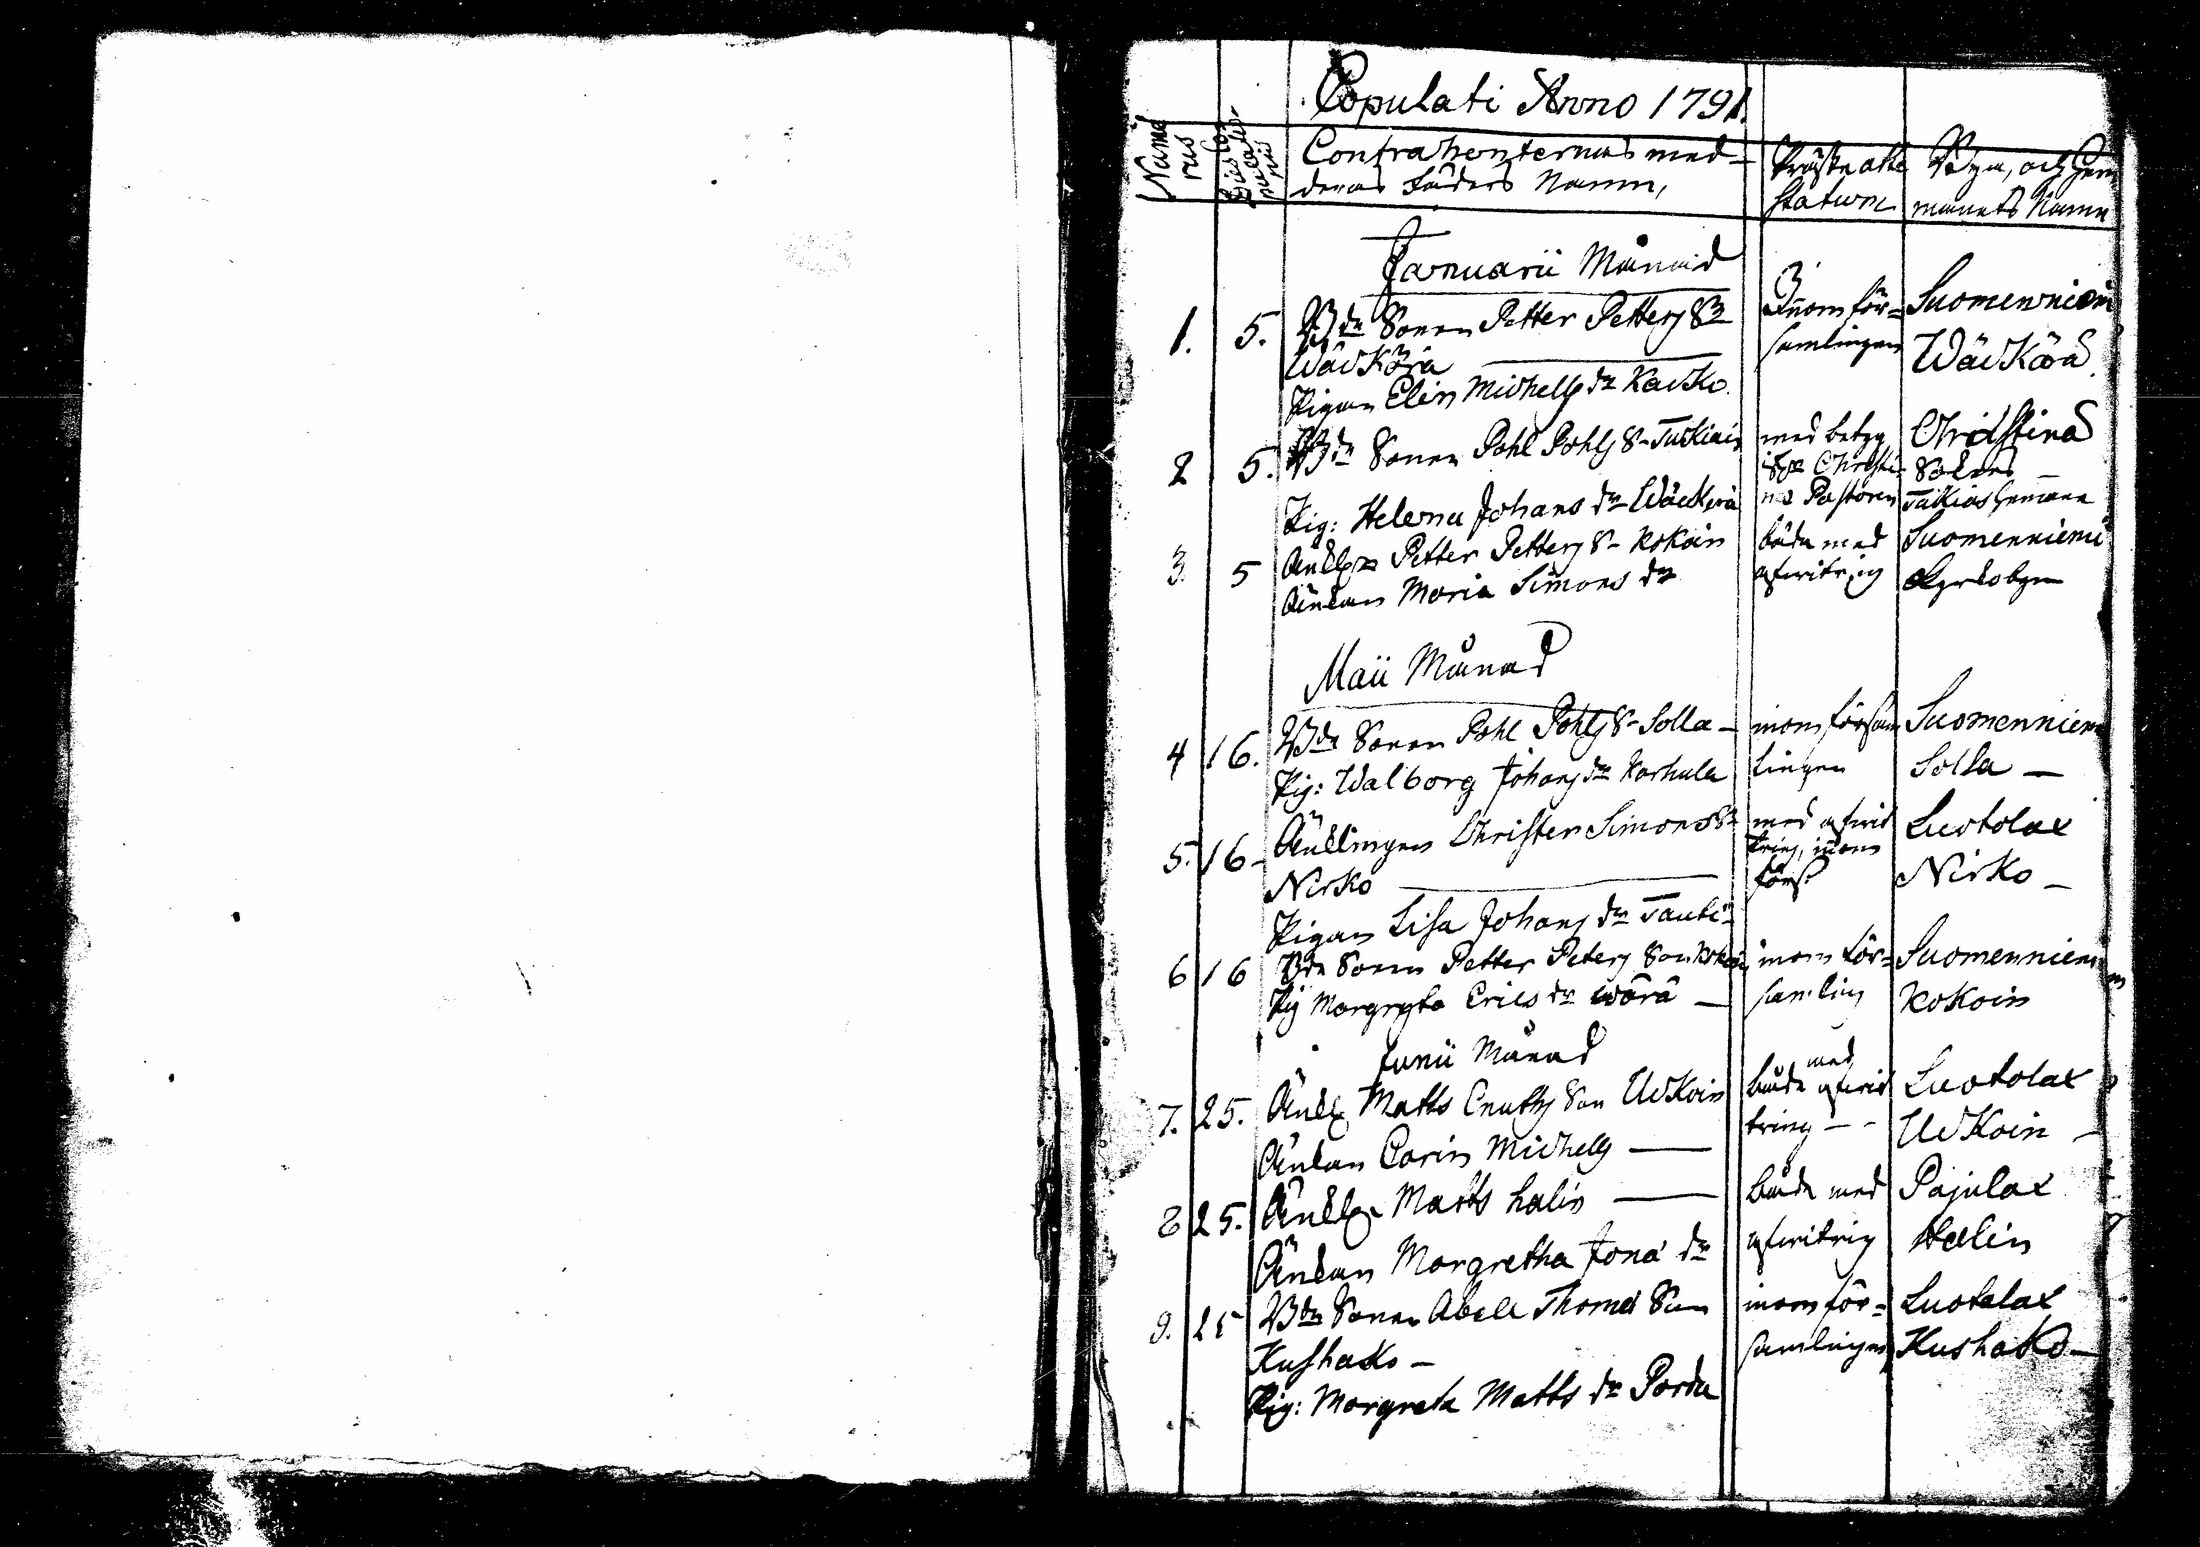 Copulati Anno 1791.
Nume
rus
Dies Co-
pulatio-
nis
Contrahenternas med
deras fäders Namn,
Präste atte
statum
Byn, och hem
manets Namn
Januarii Månad
1. 5. Bde Sonen Petter Petters Sn
Wäckärä
Pigan Elin Michells dr Kacko.
Innom för=
samlingen
Suomenniemi
Wäckärä
2 5. Bde Sonen Pohl Pohls S- Tuckiain
Pig: Helena Johans dr Wäckärä
med betyg
Christi
na Pastoren
Christina
Sokns
Tukias hemman
3. 5 Änklen Petter Petters S- Kokoin
Änkan Maria Simons dr
båda med
afwitring
Suomenniemi
Kyrkobyn
Maii Månad
4 16. Bde Sonen Pohl Pohls S- Solla -
Pig: Walborg Johans dr Karhula
inom försam
lingen
Suomenniemi
Solla -
5. 16- Änklingen Christer Simons Sn
Nirko
Pigan Lisa Johans dr Tauti
med afwit
tring, inom
förs:
Luotolax
Nirko -
6 16 Bde Sonen Petter Peters Son Kokoin
Pig Margreta Erics dr Wärä -
inom för=
samling
Suomenniemi
Kokoin
Junii Månad
7. 25. Änkl Matts Cnuts Son Uckoin
Änkan Carin Michells -
båda med afwit
tring - -
Luotolax
Uckoin -
8 25. Änkl Matts Halin -
Änkan Margretha Jona dr
båda med
afwitring
Pajulax
Halin
9. 25 Bde Sonen Abell Thomas Son
Kushako -
Pig: Margreta Matts dr Porda
inom för=
samlingen
Luotolax
Kushako -